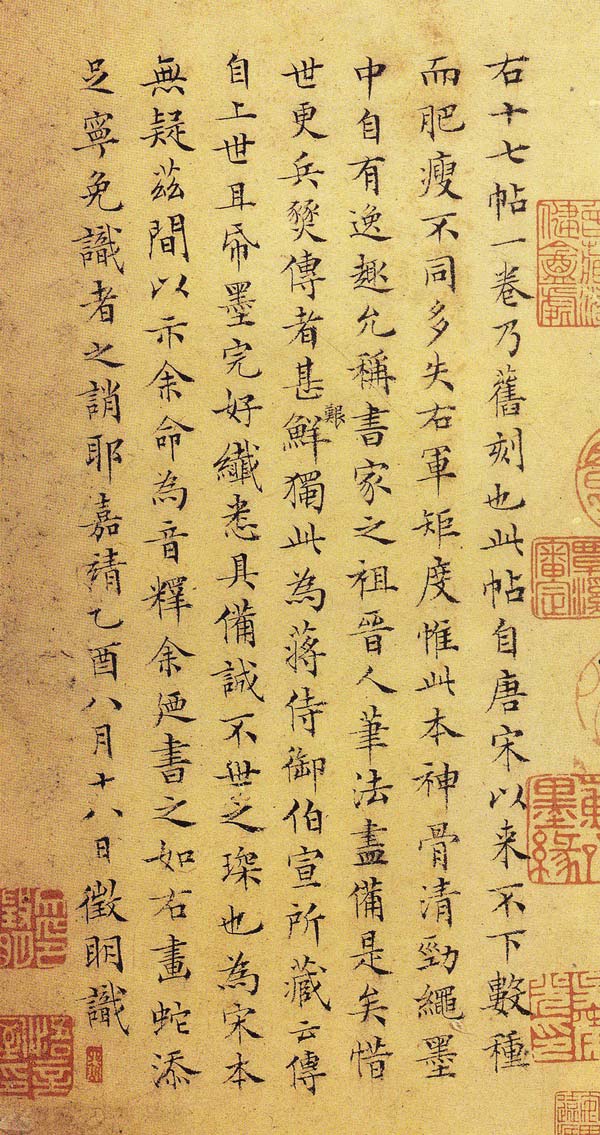 右十七帖一卷乃舊刻也此帖自唐宋以来不下數種
而肥瘦不同多失右軍矩度惟此本神骨清勁繩墨
中自有逸趣允稱書家之祖晉人筆法盡備是矣惜
世更兵燹傳者甚鮮獨此為蔣侍御伯宣所藏云傳
自上世且帋墨完好纖悉具備誠不世之琛也為宋本
無疑茲間以示余命為音釋余廼書之如右畫蛇添
足寧免識者之誚耶嘉靖乙酉八月十八日徵明識
覃溪審定
墨緣
悟言室印